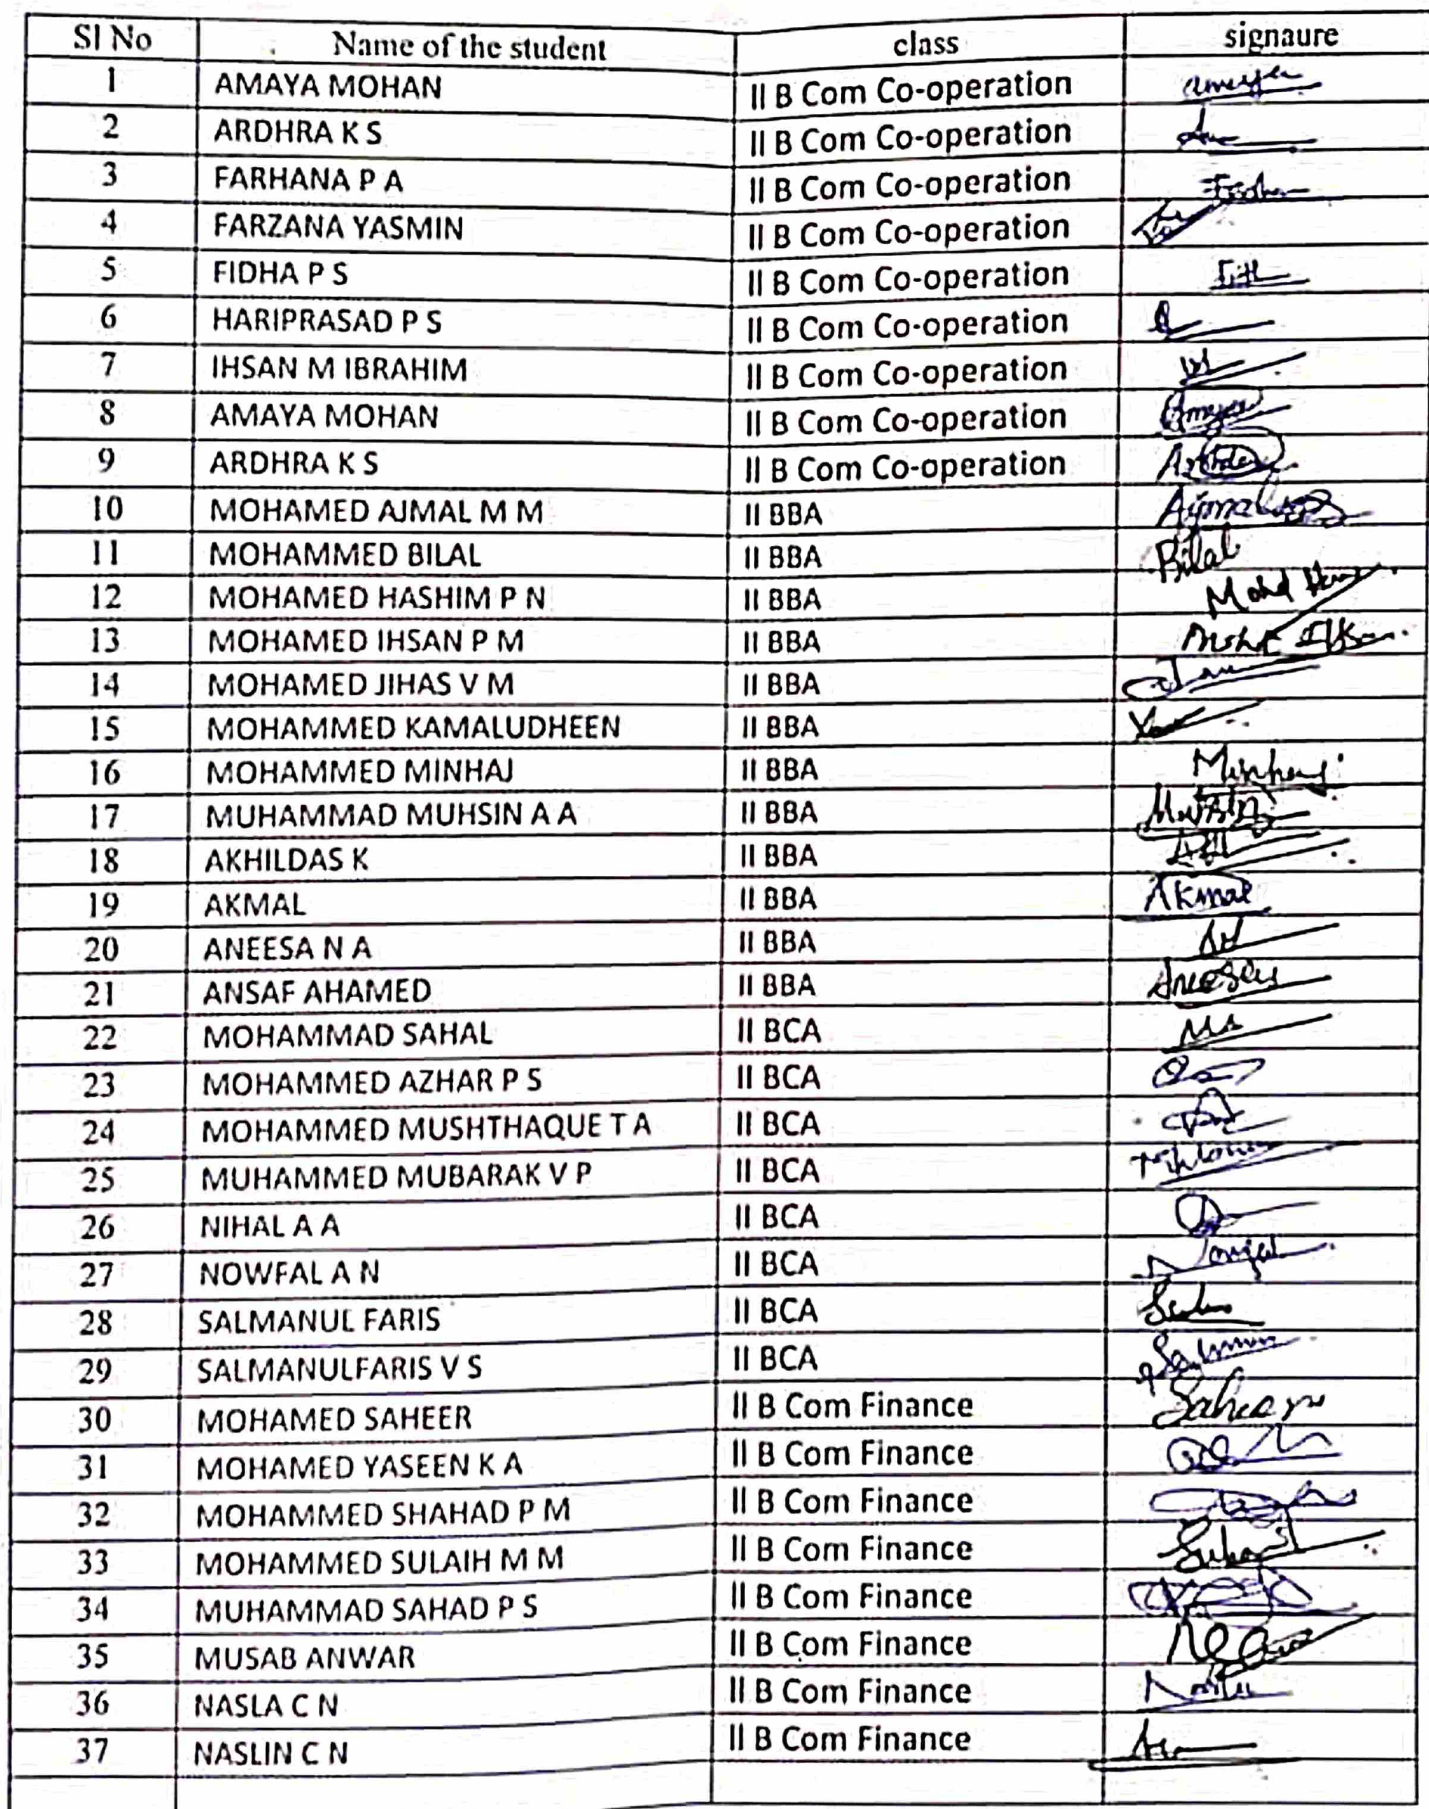 Sl No Name of the student class signaure
1 AMAYA MOHAN II B Com Co-operation amaya
2 ARDHRA K S II B Com Co-operation
3 FARHANA P A II B Com Co-operation
4 FARZANA YASMIN II B Com Co-operation
5 FIDHA P S II B Com Co-operation
6 HARIPRASAD P S II B Com Co-operation
7 IHSAN M IBRAHIM II B Com Co-operation
8 AMAYA MOHAN II B Com Co-operation
9 ARDHRA K S II B Com Co-operation
10 MOHAMED AJMAL M M II BBA Ajmal
11 MOHAMMED BILAL II BBA Bilal
12 MOHAMED HASHIM P N II BBA Mohd
13 MOHAMED IHSAN P M II BBA
14 MOHAMED JIHAS V M II BBA
15 MOHAMMED KAMALUDHEEN II BBA
16 MOHAMMED MINHAJ II BBA Minhaj
17 MUHAMMAD MUHSIN A A II BBA
18 AKHILDAS K II BBA
19 AKMAL II BBA Akmal
20 ANEESA N A II BBA
21 ANSAF AHAMED II BBA
22 MOHAMMAD SAHAL II BCA
23 MOHAMMED AZHAR P S II BCA
24 MOHAMMED MUSHTHAQUE T A II BCA
25 MUHAMMED MUBARAK V P II BCA
26 NIHAL A A II BCA
27 NOWFAL A N II BCA
28 SALMANUL FARIS II BCA
29 SALMANULFARIS V S II BCA
30 MOHAMED SAHEER II B Com Finance
31 MOHAMED YASEEN K A II B Com Finance
32 MOHAMMED SHAHAD P M II B Com Finance
33 MOHAMMED SULAIH M M II B Com Finance
34 MUHAMMAD SAHAD P S II B Com Finance
35 MUSAB ANWAR II B Com Finance
36 NASLA C N II B Com Finance
37 NASLIN C N II B Com Finance